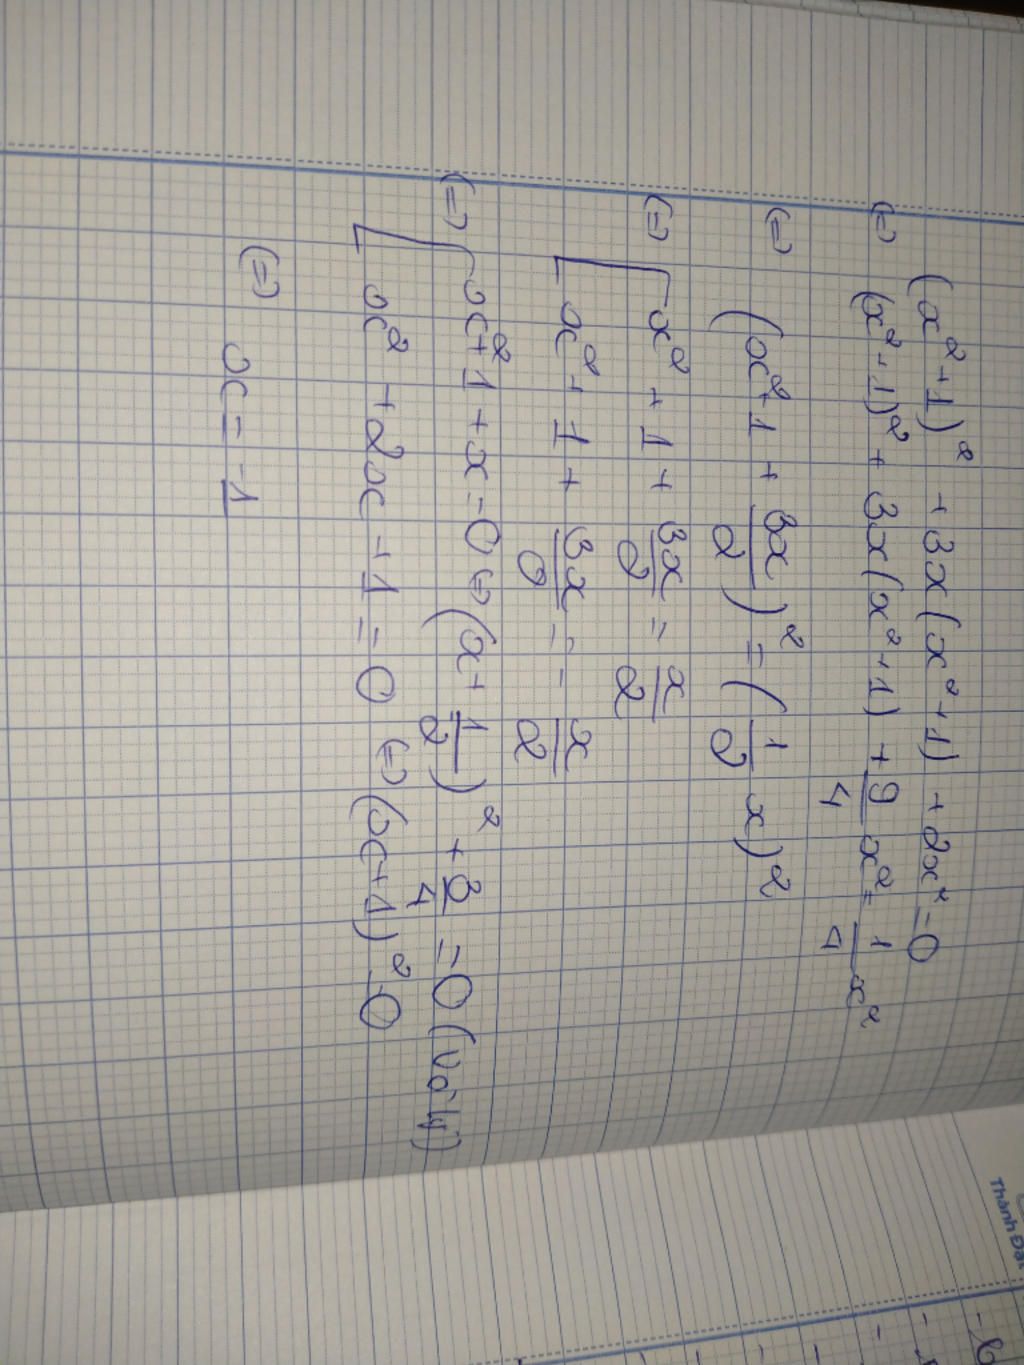 (x²+1)² + 3x(x²+1) + 2x² = 0
(=) (x²+1)² + 3x(x²+1) + 9/4 x² = 1/4 x²
(=) (x²+1 + 3x/2)² = (1/2 x)²
(=) [ x² + 1 + 3x/2 = x/2
x² + 1 + 3x/2 = - x/2
(=) [ x²+1 + x = 0 (=) (x + 1/2)² + 3/4 = 0 (Vô lý)
x² + 2x + 1 = 0 (=) (x+1)² = 0
(=) x = -1
Thành Đạt